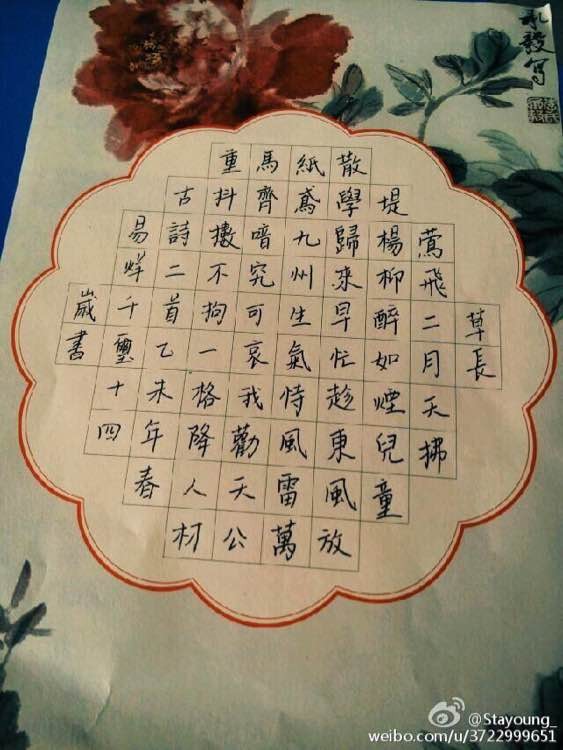 草長
莺飛二月天拂
堤楊柳醉如煙兒童
散學歸來早忙趁東風放
紙鳶九州生氣恃風雷萬
馬齊喑究可哀我勸天公
重抖擻不拘一格降人材
古詩二首乙未年春
易烊千璽十四
歲書
@Stayoung_
weibo.com/u/3722999651